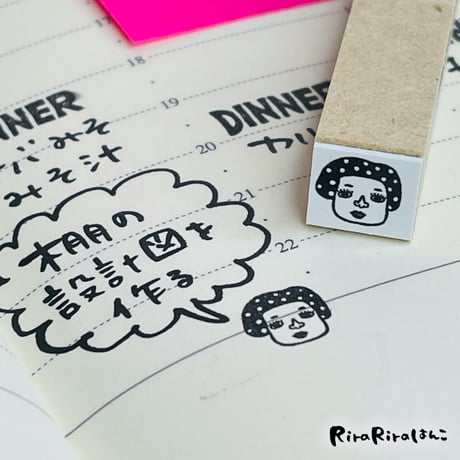 18
19
NNER
DINNER
バみそ
みそ汁
20
カリ
21
22
棚の
設計図を
作る
RiraRiraはんこ